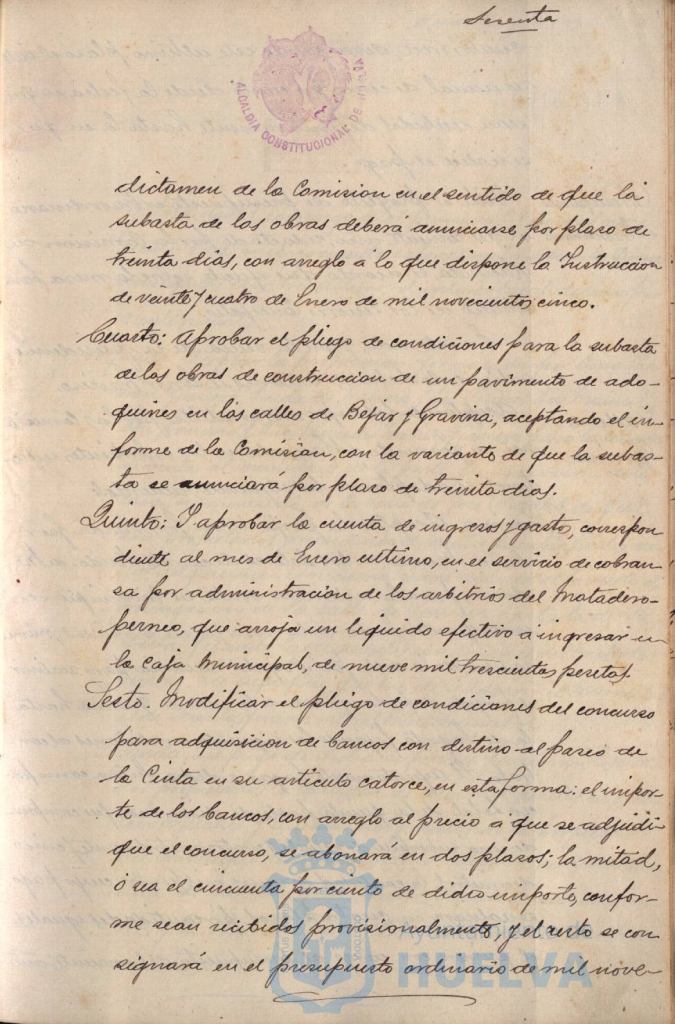 Sesenta
ALCALDIA CONSTITUCIONAL DE HUELVA
dictamen de la Comision en el sentido de que la
subasta de las obras deberá anunciarse por plaso de
treinta dias, con arreglo á lo que dispone la Instruccion
de veinte y cuatro de Enero de mil novecientos cinco.
Cuarto: Aprobar el pliego de condiciones para la subasta
de las obras de construccion de un pavimento de ado-
quines en las calles de Bejar y Gravina, aceptando el in-
forme de la Comisian, con la variante de que la subas-
ta se anunciará por plaso de treinta dias.
Quinto: Y aprobar la cuenta de ingresos y gastos, correspon
diente al mes de Enero ultimo, en el servicio de cobran
sa por administracion de los arbitrios del Matadero-
perneo, que arroja un liquido efectivo á ingresar en
la caja Municipal, de nueve mil trescientas pesetas.
Sesto. Modificar el pliego de condiciones del concurso
para adquisicion de bancos con destino al paseo de
la Cinta en su articulo catorce, en esta forma: el impor-
te de los bancos, con arreglo al precio á que se adjudi-
que el concurso, se abonará en dos plasos; la mitad,
ó sea el cincuenta por ciento de dicho importe, confor-
me sean recibidos provisionalmente, y el resto se con
signará en el presupuesto ordinario de mil nove-
Ayuntamiento de
HUELVA